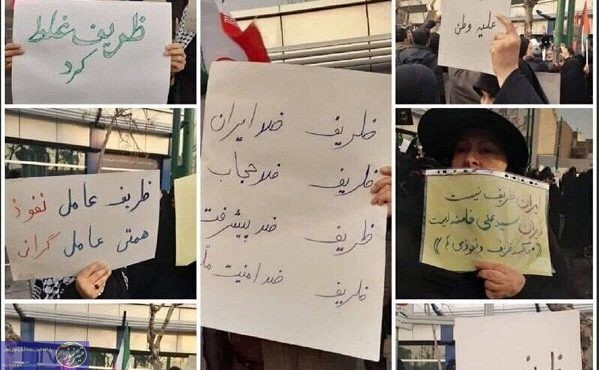 ظریف غلط
کرد
ظریف عامل نفوذ
همتی عامل گرانی
ظریف ضد ایران
ظریف ضد حجاب
ظریف ضد پیشرفت
ظریف ضد امنیت
علیه وطن
ایران ظریف نیست
ایران سید علی خامنه‌ایست
ظریف